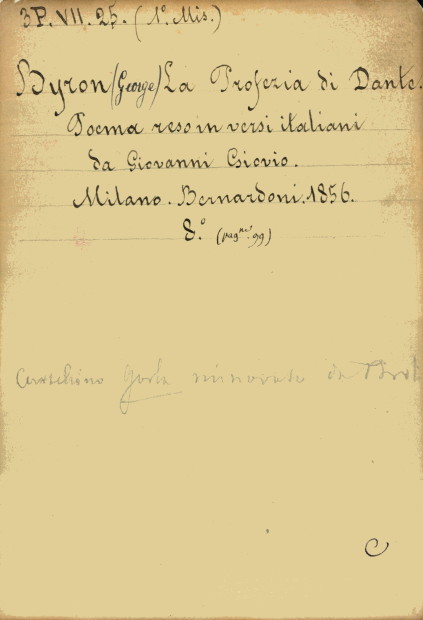 3P. VII. 25. (1º. Mis.)
Byron (George) La Profezia di Dante.
Poema reso in versi italiani
da Giovanni Giovio.
Milano. Bernardoni. 1856.
8.º (pagne. 99)
C